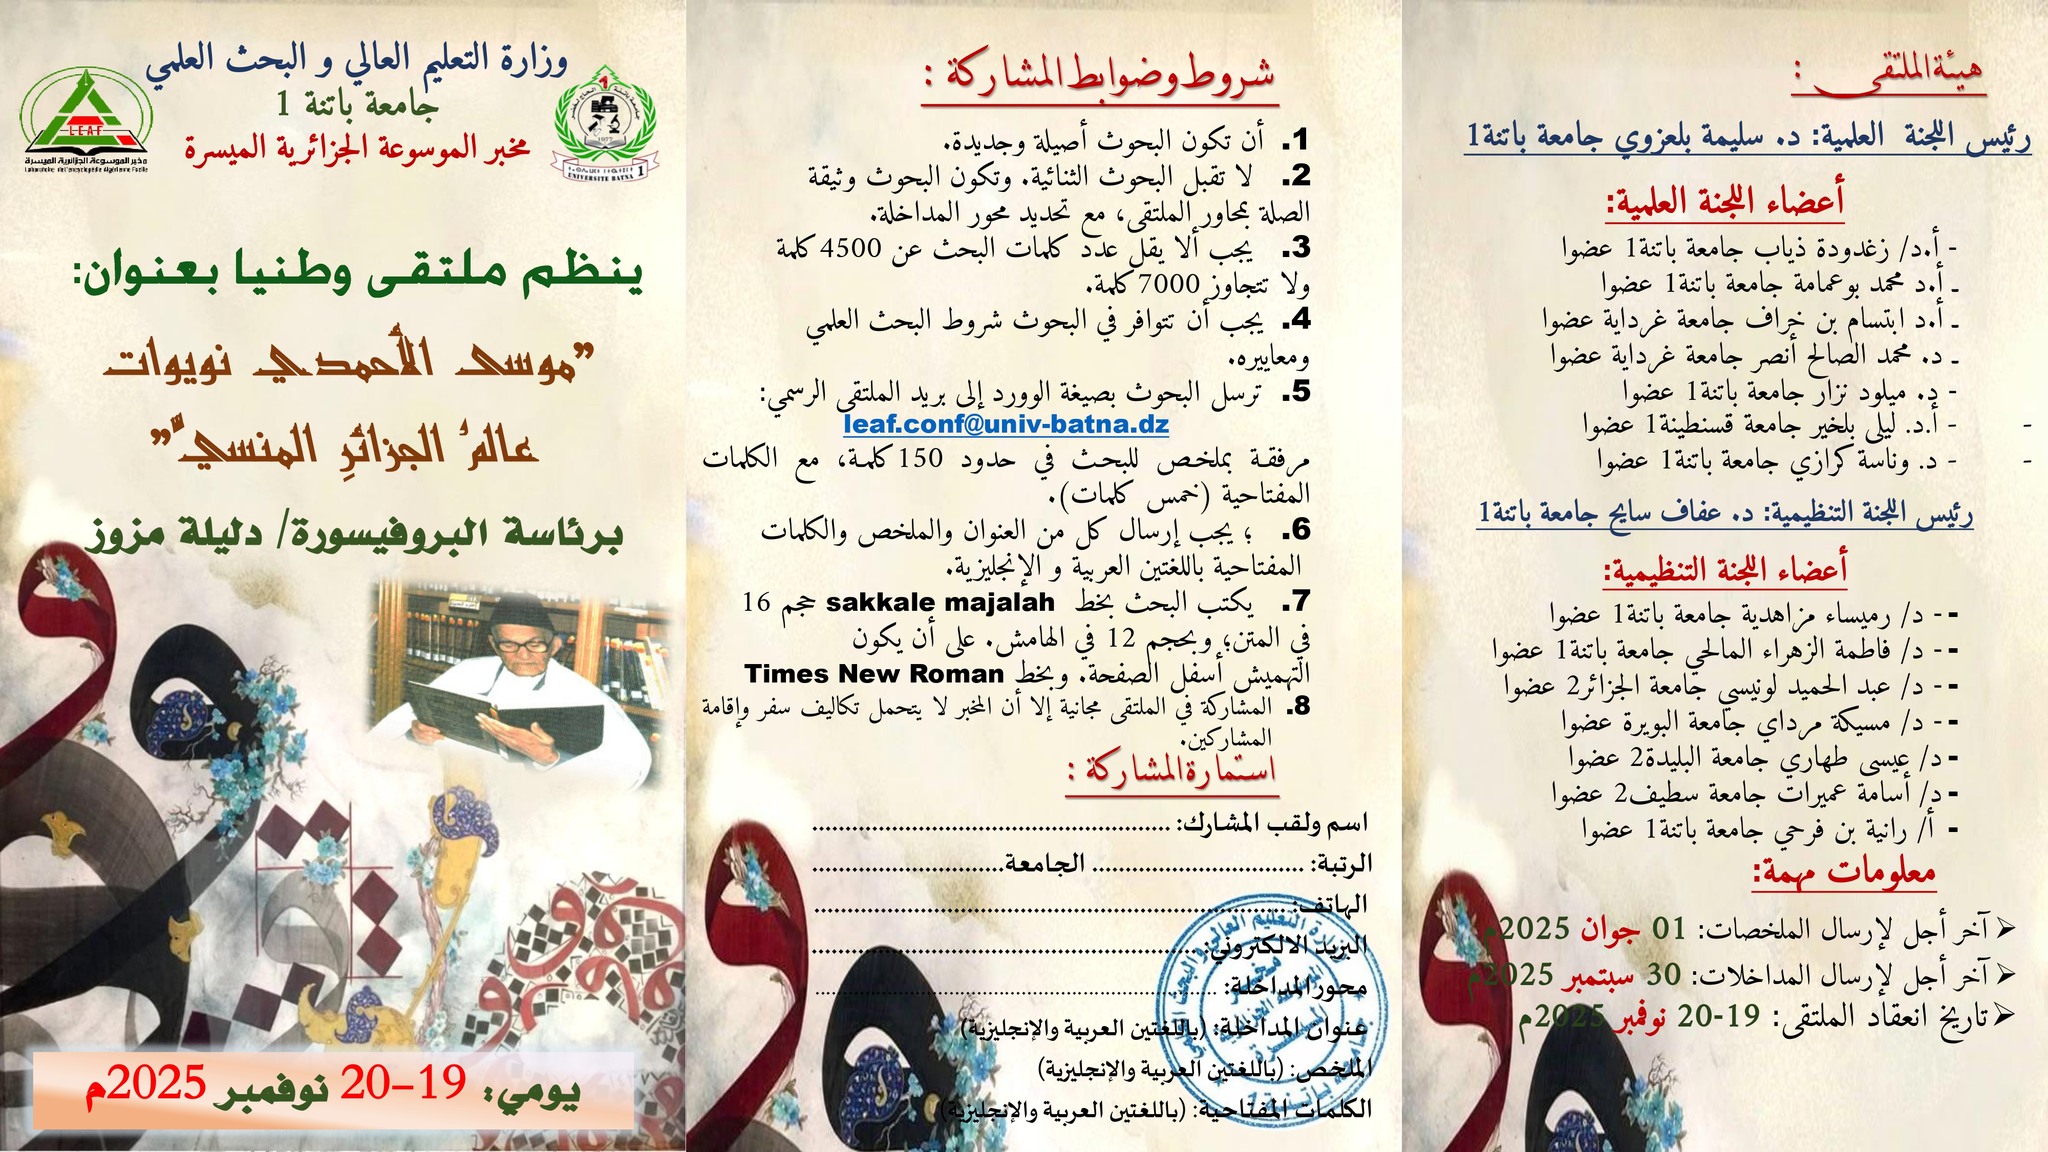 وزارة التعليم العالي و البحث العلمي
جامعة باتنة 1
مخبر الموسوعة الجزائرية الميسرة
LEAF
مخبر الموسوعة الجزائرية الميسرة
Laboratoire de l'encyclopédie Algérienne Facile
1977
UNIVERSITE BATNA 1
ينظم ملتقى وطنيا بعنوان:
”موسى الأحمدي نويوات
عالمُ الجزائرِ المنسيّ”
برئاسة البروفيسورة/ دليلة مزوز
يومي: 19–20 نوفمبر 2025م
شروط وضوابط المشاركة :
1. أن تكون البحوث أصيلة وجديدة.
2. لا تقبل البحوث الثنائية. وتكون البحوث وثيقة
الصلة بمحاور الملتقى، مع تحديد محور المداخلة.
3. يجب ألا يقل عدد كلمات البحث عن 4500 كلمة
ولا تتجاوز 7000 كلمة.
4. يجب أن تتوافر في البحوث شروط البحث العلمي
ومعاييره.
5. ترسل البحوث بصيغة الوورد إلى بريد الملتقى الرسمي:
leaf.conf@univ-batna.dz
مرفقة بملخص للبحث في حدود 150 كلمة، مع الكلمات
المفتاحية (خمس كلمات).
6. ؛ يجب إرسال كل من العنوان والملخص والكلمات
المفتاحية باللغتين العربية و الإنجليزية.
7. يكتب البحث بخط sakkale majalah حجم 16
في المتن؛ وبحجم 12 في الهامش. على أن يكون
التهميش أسفل الصفحة. وبخط Times New Roman
8. المشاركة في الملتقى مجانية إلا أن المخبر لا يتحمل تكاليف سفر وإقامة
المشاركين.
استمارة المشاركة :
اسم ولقب المشارك: ......................................................
الرتبة: ................................ الجامعة.............................
الهاتف:........................................................................
البريد الالكتروني:...........................................................
محور المداخلة: ............................................................
عنوان المداخلة: (باللغتين العربية والإنجليزية)
الملخص: (باللغتين العربية والإنجليزية)
الكلمات المفتاحية: (باللغتين العربية والإنجليزية)
هيئة الملتقى :
رئيس اللجنة العلمية: د. سليمة بلعزوي جامعة باتنة1
أعضاء اللجنة العلمية:
- أ.د/ زغدودة ذياب جامعة باتنة1 عضوا
ـ أ.د محمد بوعمامة جامعة باتنة1 عضوا
ـ أ.د ابتسام بن خراف جامعة غرداية عضوا
ـ د. محمد الصالح أنصر جامعة غرداية عضوا
- د. ميلود نزار جامعة باتنة1 عضوا
- - أ.د. ليلى بلخير جامعة قسنطينة1 عضوا
- - د. وناسة كرازي جامعة باتنة1 عضوا
رئيس اللجنة التنظيمية: د. عفاف سايح جامعة باتنة1
أعضاء اللجنة التنظيمية:
-- د/ رميساء مزاهدية جامعة باتنة1 عضوا
-- د/ فاطمة الزهراء المالحي جامعة باتنة1 عضوا
-- د/ عبد الحميد لونيسي جامعة الجزائر2 عضوا
-- د/ مسيكة مرداي جامعة البويرة عضوا
- د/ عيسى طهاري جامعة البليدة2 عضوا
- د/ أسامة عميرات جامعة سطيف2 عضوا
- أ/ رانية بن فرحي جامعة باتنة1 عضوا
معلومات مهمة:
➢ آخر أجل لإرسال الملخصات: 01 جوان 2025م
➢ آخر أجل لإرسال المداخلات: 30 سبتمبر 2025م
➢ تاريخ انعقاد الملتقى: 19-20 نوفمبر 2025م